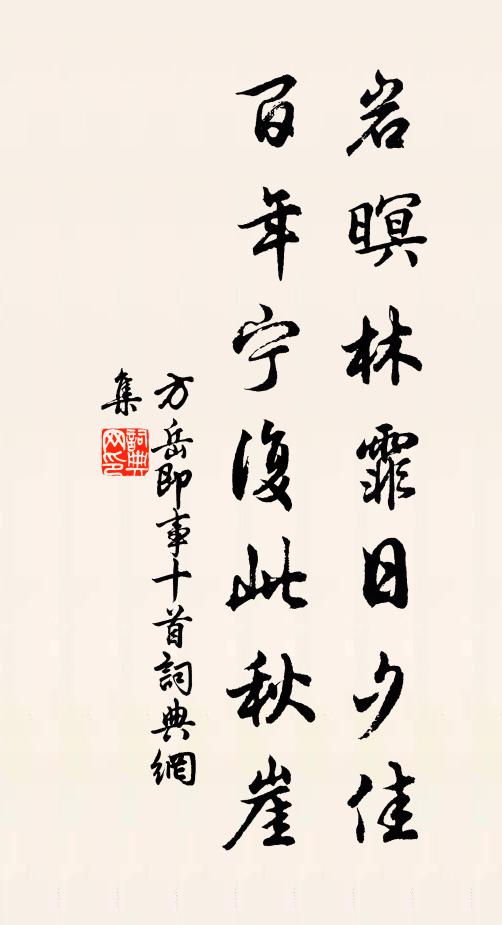 岩暝林霏日夕佳
百年宁復此秋崖
方岳即事十首詞典網
集
詞典
网印